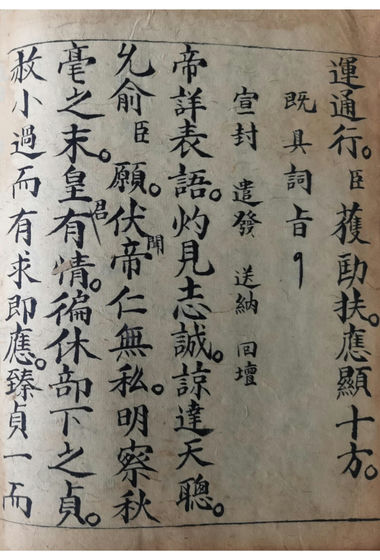 運通行。臣獲助扶。應顯十方。
既具詞㫖
宣封 遣發 送納 回壇
帝詳表語。灼見志誠。諒達天聰。
允俞臣願。伏聞帝仁無私。明察秋
毫之末。皇君有情。徧休部下之貞。
赦小過而有求即應。臻貞一而